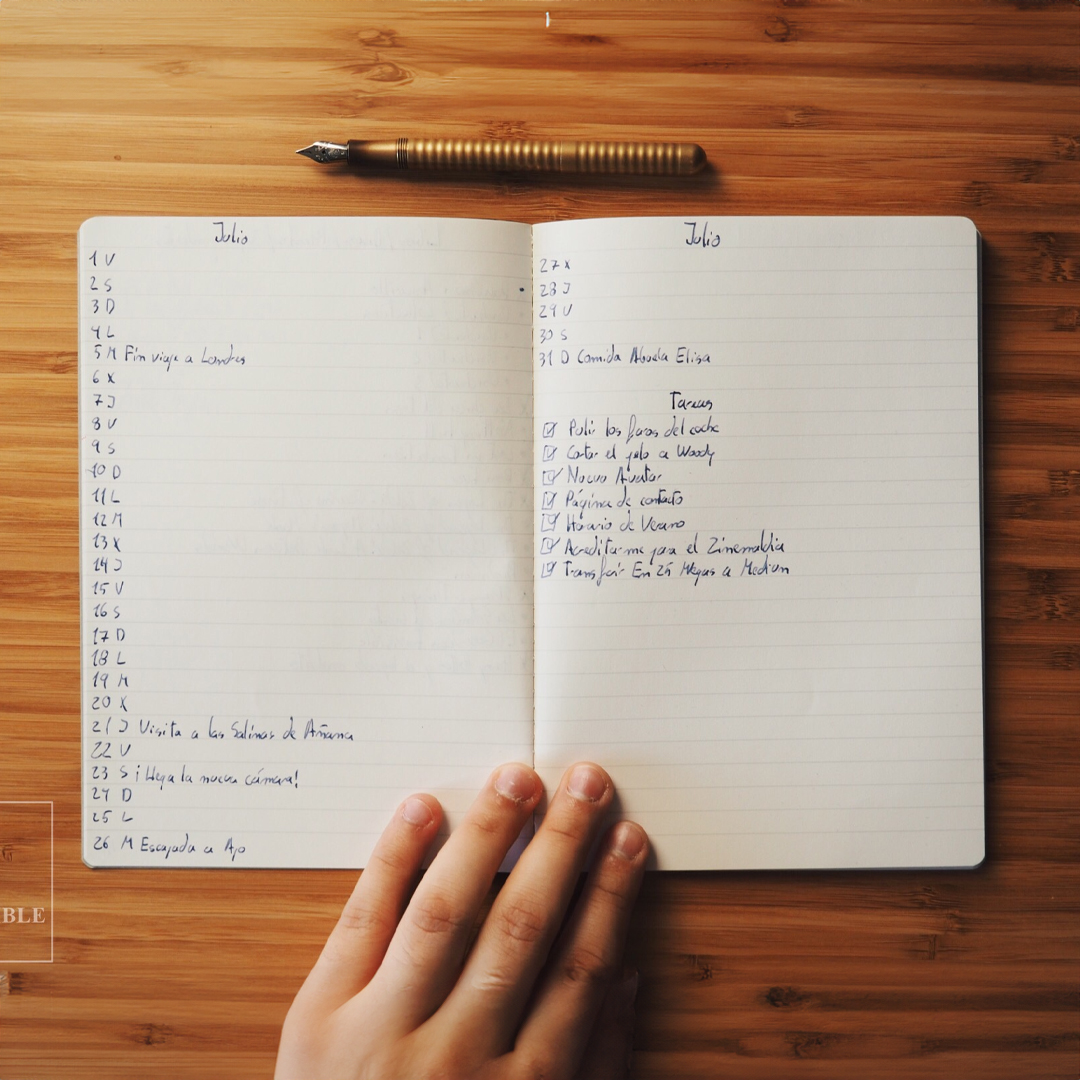 Julio
1 V
2 S
3 D
4 L
5 M Fin viaje a Londres
6 X
7 J
8 V
9 S
10 D
11 L
12 M
13 X
14 J
15 V
16 S
17 D
18 L
19 M
20 X
21 J Visita a las Salinas de Añana
22 V
23 S ¡Llega la nueva cámara!
24 D
25 L
26 M Escapada a Ajo
Julio
27 X
28 J
29 V
30 S
31 D Comida Abuela Elisa
Tareas
Pulir los faros del coche
Cortar el pelo a Woody
Nuevo Avatar
Página de contacto
Horario de Verano
Acreditarme para el Zinemaldia
Transferir En 25 Megas a Medium
BLE